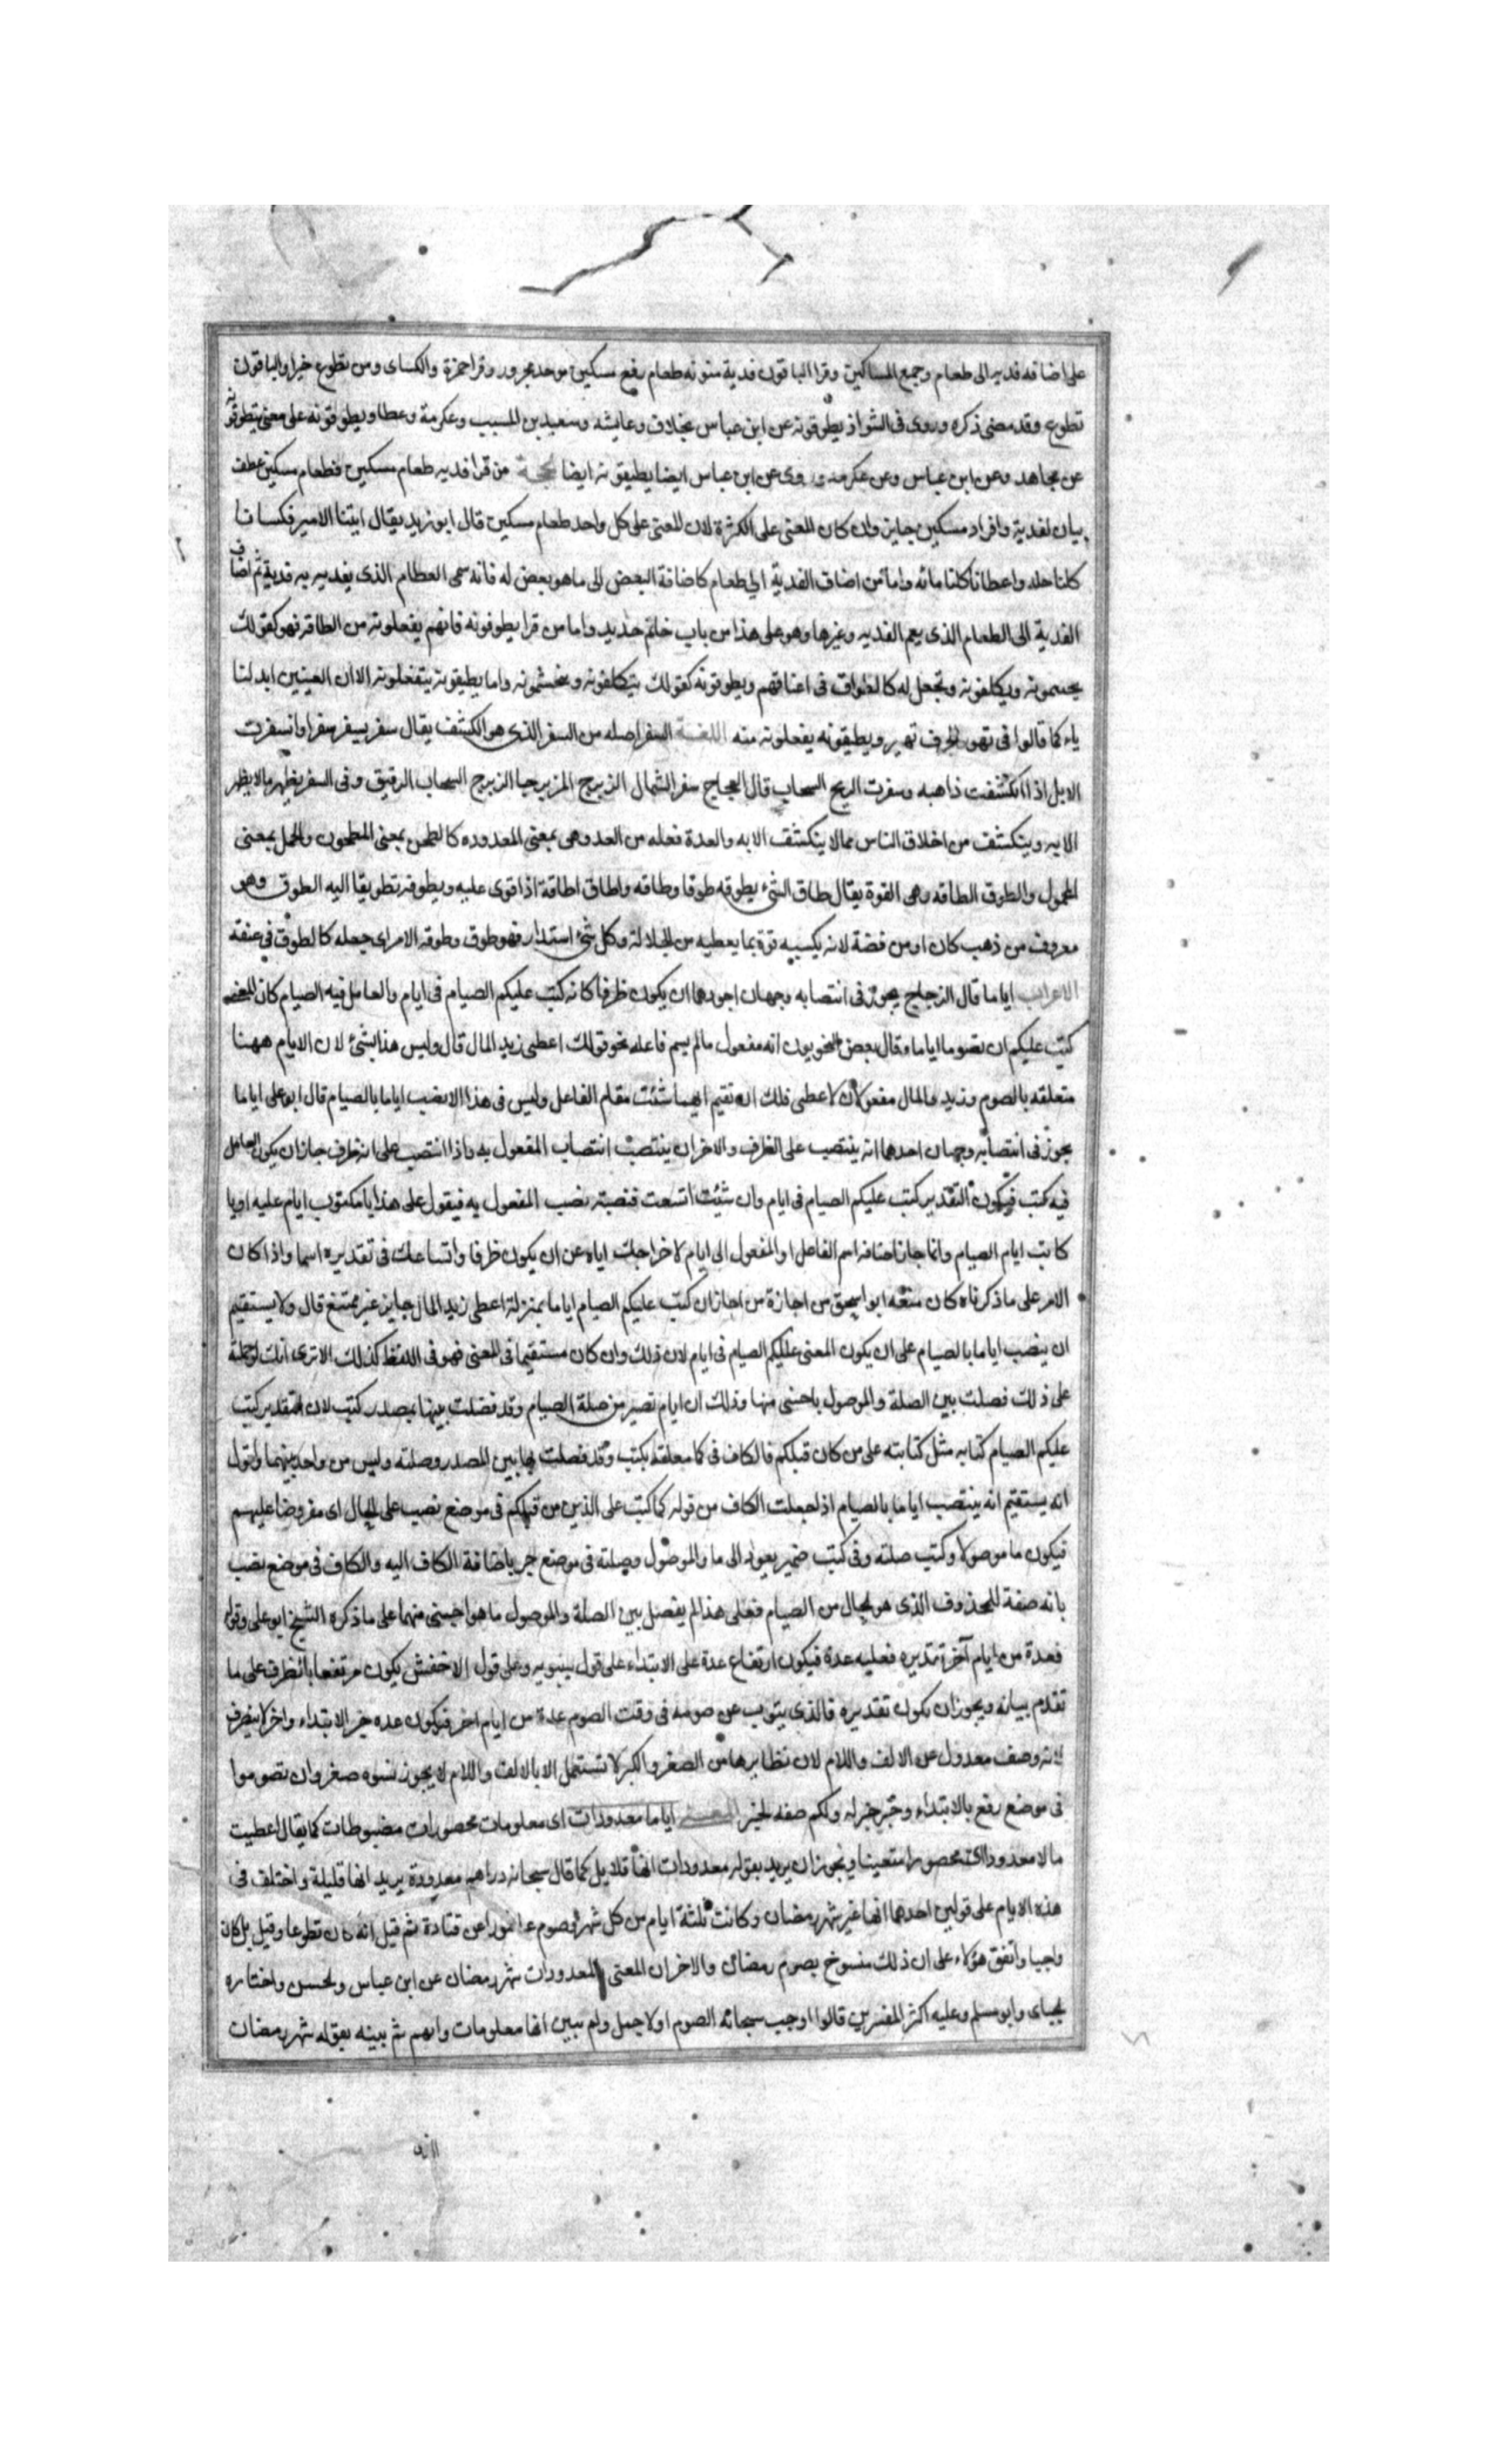 على اضافة فديه الى طعام وجمع المساكين وقرا الباقون فدية منونه طعام رفع مسكين موحد مجرور وقرا حمزة والكساى ومن يطوع خيرا والباقون
تطوع وقد مضى ذكره وروى فى الشواذ يطوقونه عن ابن عباس بخلاف وعايشه وسعيد بن المسيب وعكرمة وعطا ويطوقونه على معنى يتطوقونه
عن مجاهد وعن ابن عباس وعن عكرمه وروى عن ابن عباس ايضا يطيقونه ايضا الحجة من قرا فديه طعام مسكين فطعام مسكين عطف
بيان لفدية وافراد مسكين جايز وان كان المعنى على الكثرة لان المعنى على كل واحد طعام مسكين قال ابو زيد يقال اتينا الامير فكسانا
كلنا حله واعطانا كلنا مائه واما من اضاف الفدية الى طعام كاضافة البعض الى ما هو بعض له فانه سمى الطعام الذى يفديه به فدية ثم اضاف
الفدية الى الطعام الذى يعم الفديه وغيرها وهو على هذا من باب خاتم حديد واما من قرا يطوقونه فانهم يفعلونه من الطاقه فهو كقولك
يجشمونه ويكلفونه ويجعل له كالطواق فى اعناقهم ويطوقونه كقولك يتكلفونه ويتجشمونه واما يطيقونه يتفعلونه الا ان العينين ابدلتا
ياء كما قالوا فى تهور الجرف تهير ويطيقونه يفعلونه منه اللغة السفر اصله من السفر الذى هو الكشف يقال سفر يسفر سفرا وانسفرت
الابل اذا انكشفت ذاهبه وسفرت الريح السحاب قال العجاج سفر الشمال الزبرج المزبرجا الزبرج السحاب الرقيق وفى السفر يظهر ما لا يظهر
الا به وينكشف من اخلاق الناس ممالا ينكشف الا به والعدة فعله من العد وهى بمعنى المعدوده كالطحن بمعنى المطحون والحمل بمعنى
المحمول والطوق الطاقه وهى القوة يقال طاق الشىء يطوقه طوقا وطاقه واطاق اطاقة اذا قوى عليه ويطوقه تطويقا اليه الطوق وهو
معروف من ذهب كان او من فضة لانه يكسبه قوة بما يعطيه من الجلالة وكل شئ استدار فهو طوق وطوقه الامر اى جعله كالطوق فى عنقه
الاعراب اياما قال الزجاج يجوز فى انتصابه وجهان اجودهما ان يكون ظرفا كانه كتب عليكم الصيام فى ايام والعامل فيه الصيام كان المعنى
كتب عليكم ان تصوموا اياما وقال بعض النحويون انه مفعول مالم يسم فاعله نحو قولك اعطى زيد المال قال وليس هذا بشئ لان الايام ههنا
متعلقه بالصوم وزيد والمال مفعولان لاعطى فلك ان تقيم ايهما شئت مقام الفاعل وليس فى هذا الا نصب اياما بالصيام قال ابو على اياما
يجوز فى انتصابه وجهان احدهما انه ينتصب على الظرف والاخر ان ينتصب انتصاب المفعول به واذا انتصب على انه ظرف جاز ان يكون العامل
فيه كتب فيكون التقدير كتب عليكم الصيام فى ايام وان شئت اتسعت فنصبته نصب المفعول به فيقول على هذا يا مكتوب ايام عليه او يا
كاتب ايام الصيام وانما جاز اضافه اسم الفاعل او المفعول الى ايام لاخراجك اياه عن ان يكون ظرفا واتساعك فى تقديره اسما واذا كان
الامر على ما ذكرناه كان منعه ابو اسحق من اجازة من اجاز ان كتب عليكم الصيام اياما بمنزلة اعطى زيد المال جايز غير ممتنع قال ولا يستقيم
ان ينصب اياما بالصيام على ان يكون المعنى عليكم الصيام فى ايام لان ذلك وان كان مستقيما فى المعنى فهو فى اللفظ كذلك الا ترى انك لو حملته
على ذلك فصلت بين الصلة والموصول باجنبى منها وذلك ان ايام تصير من صلة الصيام وقد فصلت بينهما بمصدر كتب لان التقدير كتب
عليكم الصيام كتابه مثل كتابته على من كان قبلكم فالكاف فى كما معلقه بكتب وقد فصلت بها بين المصدر وصلته وليس من واحد منهما واقول
انه يستقيم انه ينتصب اياما بالصيام اذا جعلت الكاف من قوله كما كتب على الذين من قبلكم فى موضع نصب على الحال اى مفروضا عليهم
فيكون ما موصولا وكتب صلته وفى كتب ضمير يعود الى ما والموصول وصلته فى موضع جر باضافة الكاف اليه والكاف فى موضع نصب
بانه صفة للمحذوف الذى هو الحال من الصيام فعلى هذا لم يفصل بين الصلة والموصول ما هو اجنبى منهما على ما ذكره الشيخ ابو على وقوله
فعدة من ايام آخر تقديره فعليه عدة فيكون ارتفاع عدة على الابتداء على قول سيبويه وعلى قول الاخفش يكون مرتفعا بالظرف على ما
تقدم بيانه ويجوز ان يكون تقديره فالذى ينوب عن صومه فى وقت الصوم عدة من ايام اخر فيكون عده خبر الابتداء واخر لا ينصرف
لانه وصف معدول عن الالف واللام لان نظايرها من الصغر والكبر لا تستعمل الا بالالف واللام لا يجوز نسوه صغر وان تصوموا
فى موضع رفع بالابتداء وخير خبر له ولكم صفه لخير المعنى اياما معدودات اى معلومات محصورات مضبوطات كما يقال اعطيت
مالا معدودا اى محصورا متعينا ويجوز ان يريد بقوله معدودات انها قلايل كما قال سبحانه دراهم معدودة يريد انها قليلة واختلف فى
هذه الايام على قولين احدهما انها غير شهر رمضان وكانت ثلثة ايام من كل شهر وصوم عاشورا عن قتادة ثم قيل انه كان تطوعا وقيل بل كان
واجبا واتفق هؤلاء على ان ذلك منسوخ بصوم رمضان والاخر ان المعنى المعدودات شهر رمضان عن ابن عباس والحسن واختاره
الجباى وابو مسلم وعليه اكثر المفسرين قالوا اوجب سبحانه الصوم اولا جمل ولم يبين انها معلومات وابهم ثم بينه بقوله شهر رمضان